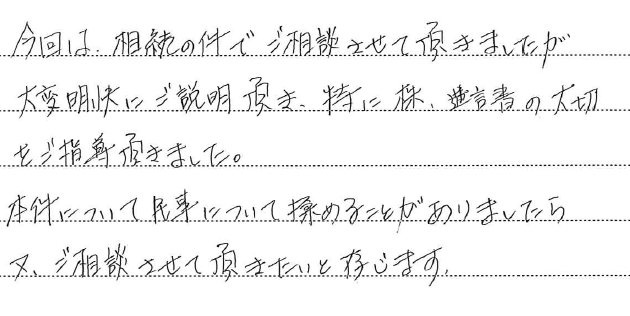 今回は、相続の件でご相談させて頂きましたが
大変明快にご説明頂き、特に株、遺言書の大切
をご指導頂きました。
本件について民事について揉めることがありましたら
又、ご相談させて頂きたいと存じます。